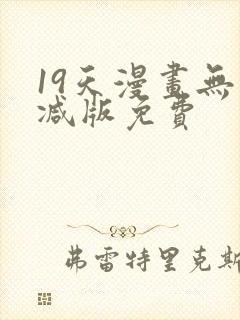 19天漫畫無
减版免費
弗雷特里克斯